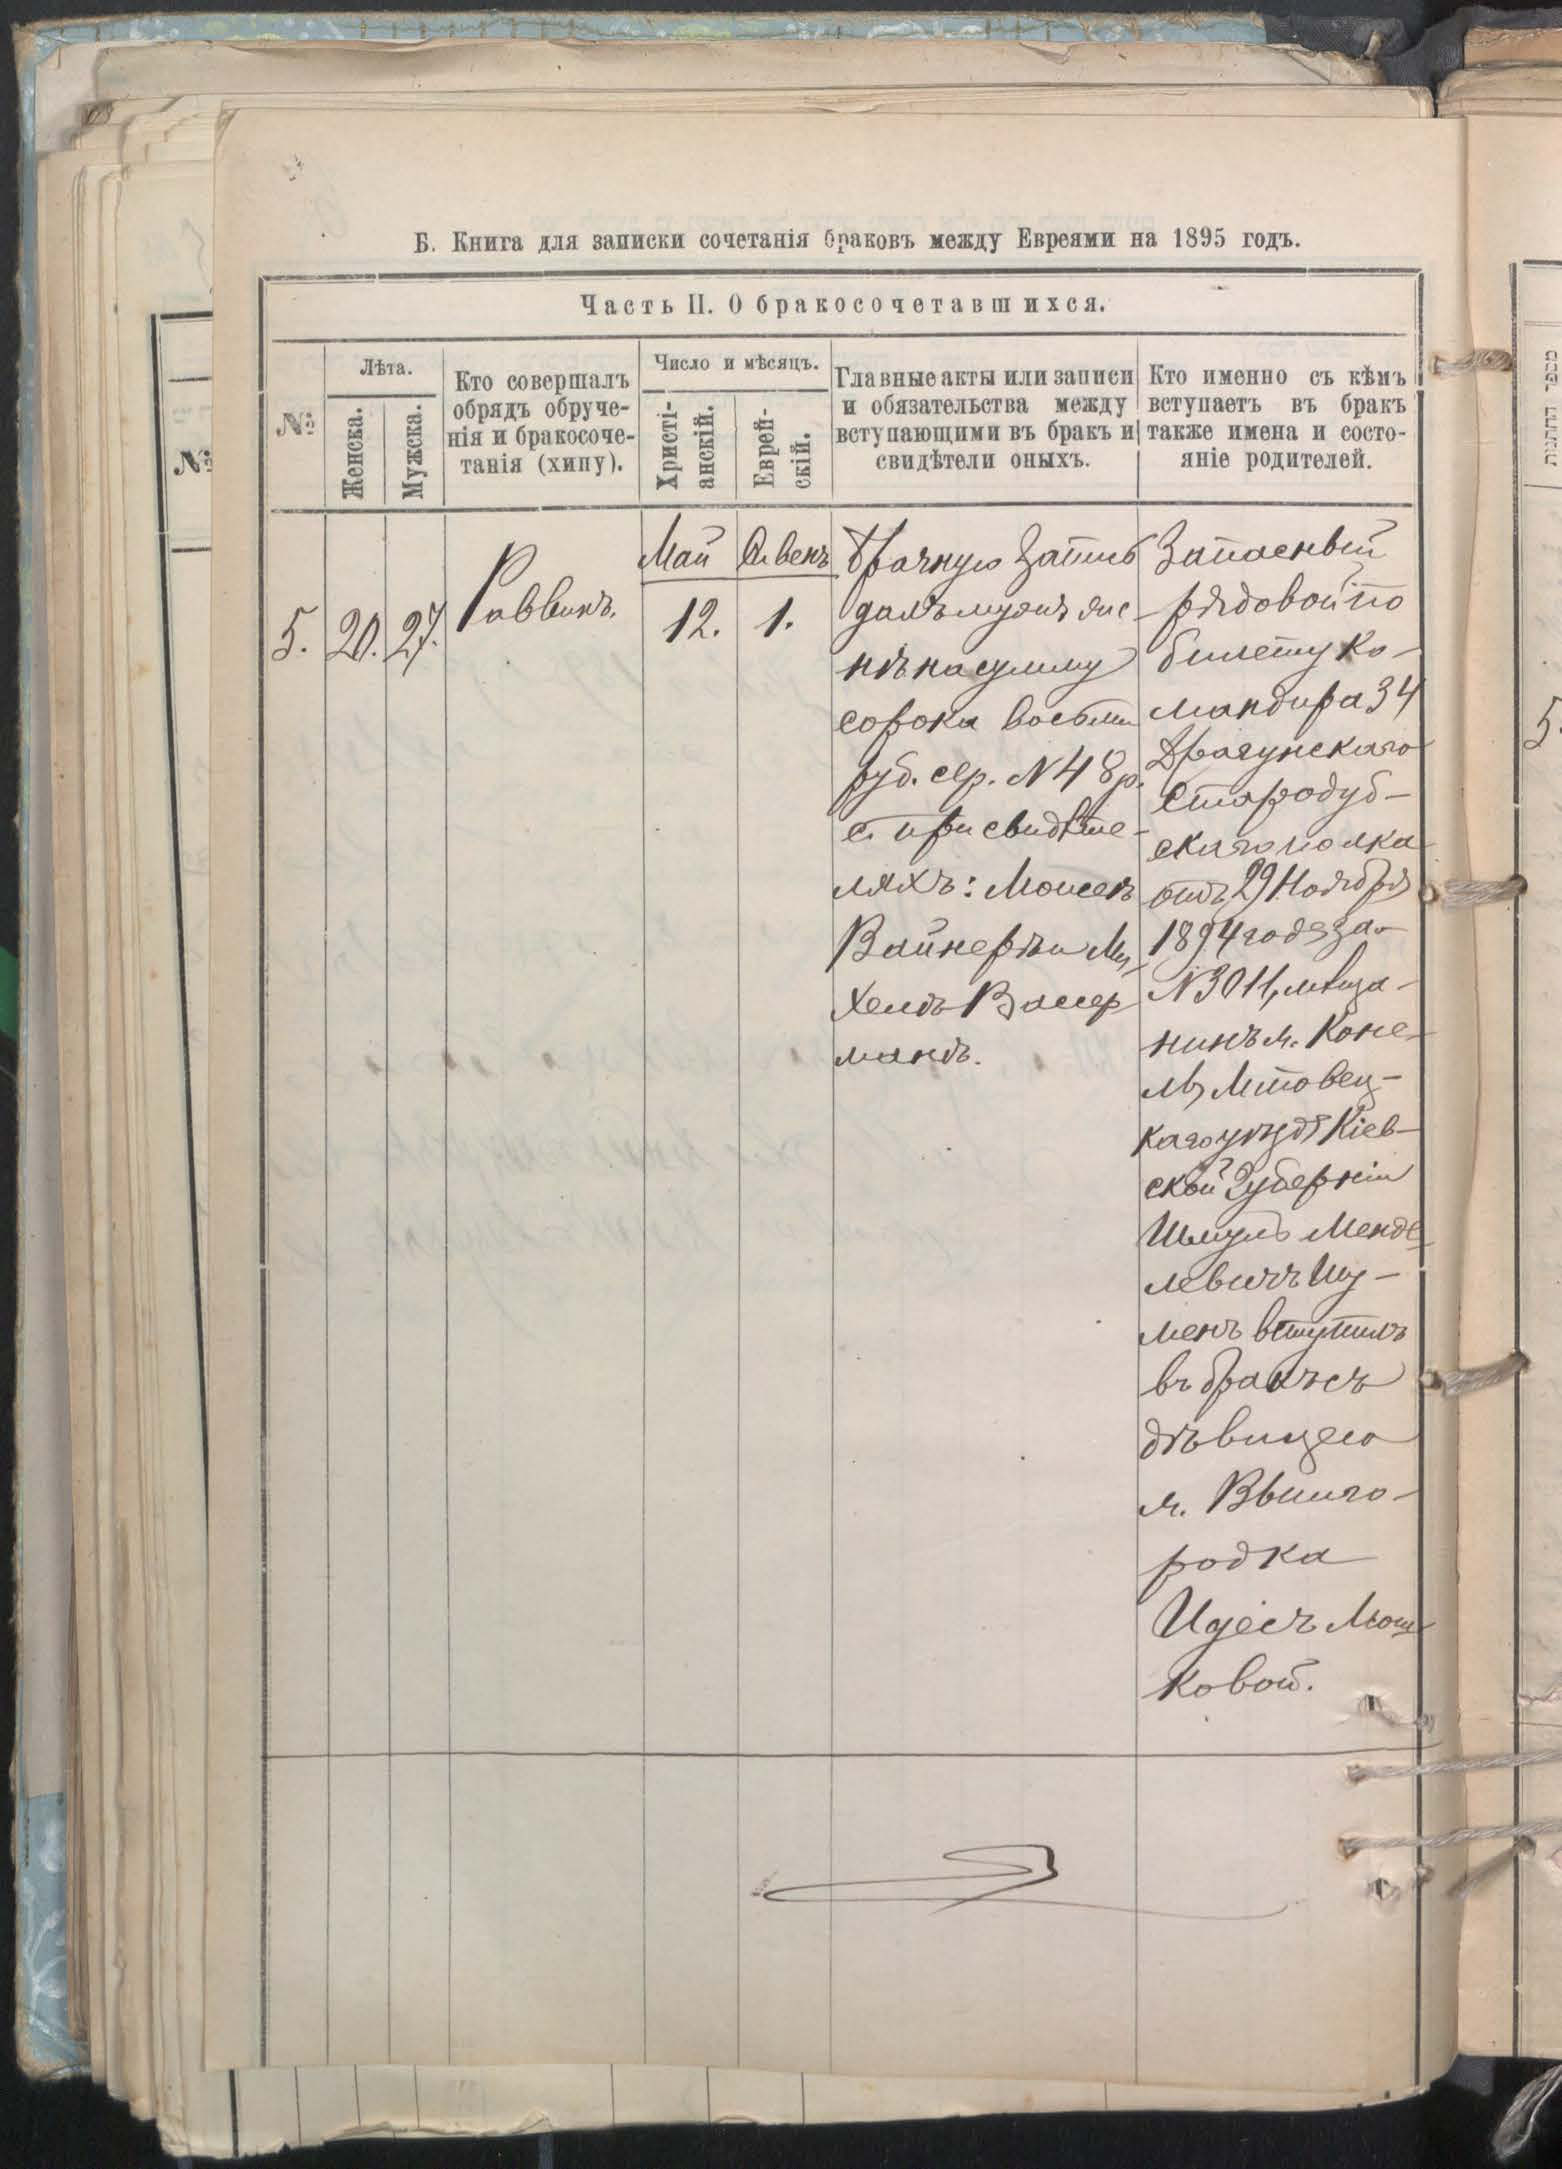 Б. Книга для записки сочетанія браковъ между Евреями на 1895 годъ.
Часть II. О бракосочетавшихся.
№
Лѣта.
Женска.
Мужска.
Кто совершалъ
обрядъ обруче-
нія и бракосоче-
танія (хипу).
Число и мѣсяцъ.
Христі-
анскій.
Еврей-
скій.
Главные акты или записи
и обязательства между
вступающими въ бракъ и
свидѣтели оныхъ.
Кто именно съ кѣмъ
вступаетъ въ бракъ
также имена и состо-
яніе родителей.
5.
20.
27.
Раввинъ.
Май
12.
Сивенъ
1.
Брачную запись
далъ мужъ же
нѣ на сумму
сорока восьми
руб. сер. N 48 р.
с. при свидѣте-
ляхъ: Моисей
Вайнеръ и Ми
хель Васер
манъ.
Запасный
рядовой по
билету Ко-
мандира 34
Драгунскаго
Стародуб-
скаго полка
отъ 29 Ноября
1894 года за
N 3011, мѣща-
нинъ м. Коне-
лы Липовец-
каго уѣзда Кіев-
ской Губерніи
Шмуль Менде
левичъ
вступилъ
въ бракъ съ
дѣвицею
м. Вышго-
родка
Идесъ Мош
ковой.
№
5.